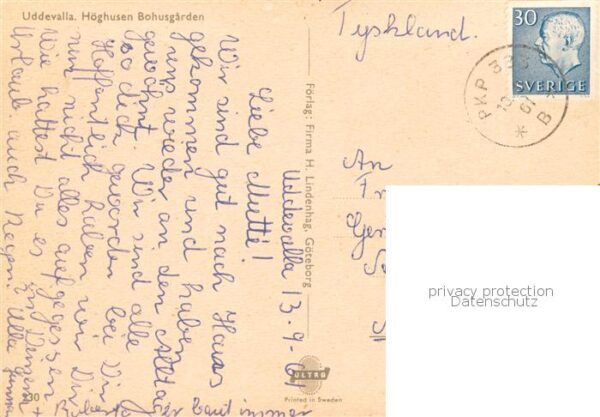 Uddevalla. Höghusen Bohusgården
Uddevalla 13.9-61
Liebe Mutti!
Wir sind gut nach Haus
gekommen und haben
uns wieder an den Alltag
gewöhnt. Wir sind alle
so dick geworden bei Dir
Hoffentlich haben wir Dir
nun nicht alles aufgegessen
Wie hattest Du es in Deinem
Urlaub. auch Regen. Ulla
baut immer
Förlag: Firma H. Lindenhag, Göteborg
ULTRA
Printed in Sweden
Tyskland.
30
SVERIGE
PKP 333
61
B
An
privacy protection
Datenschutz